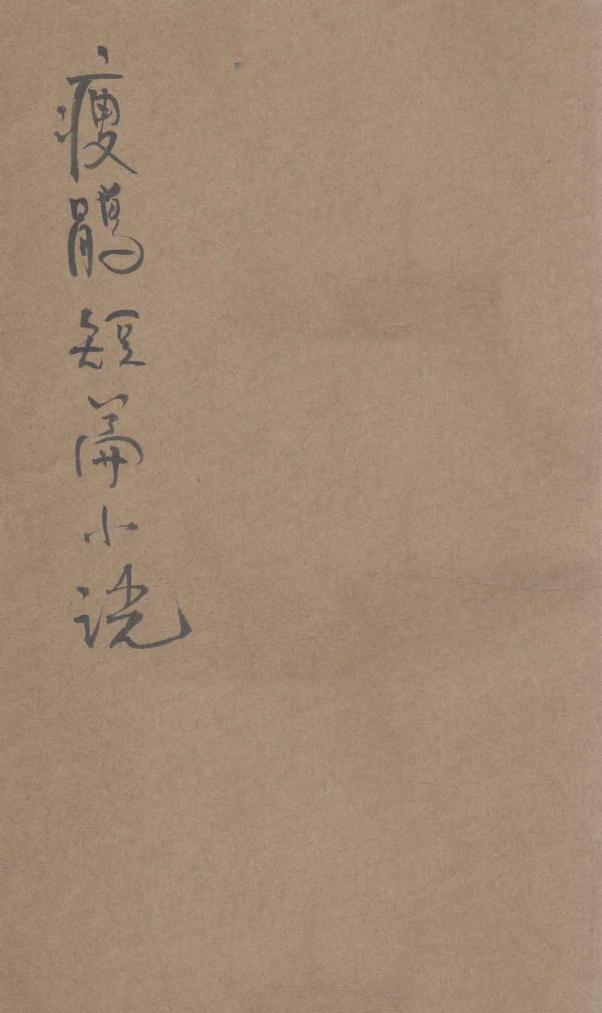 瘦鵑短篇小説